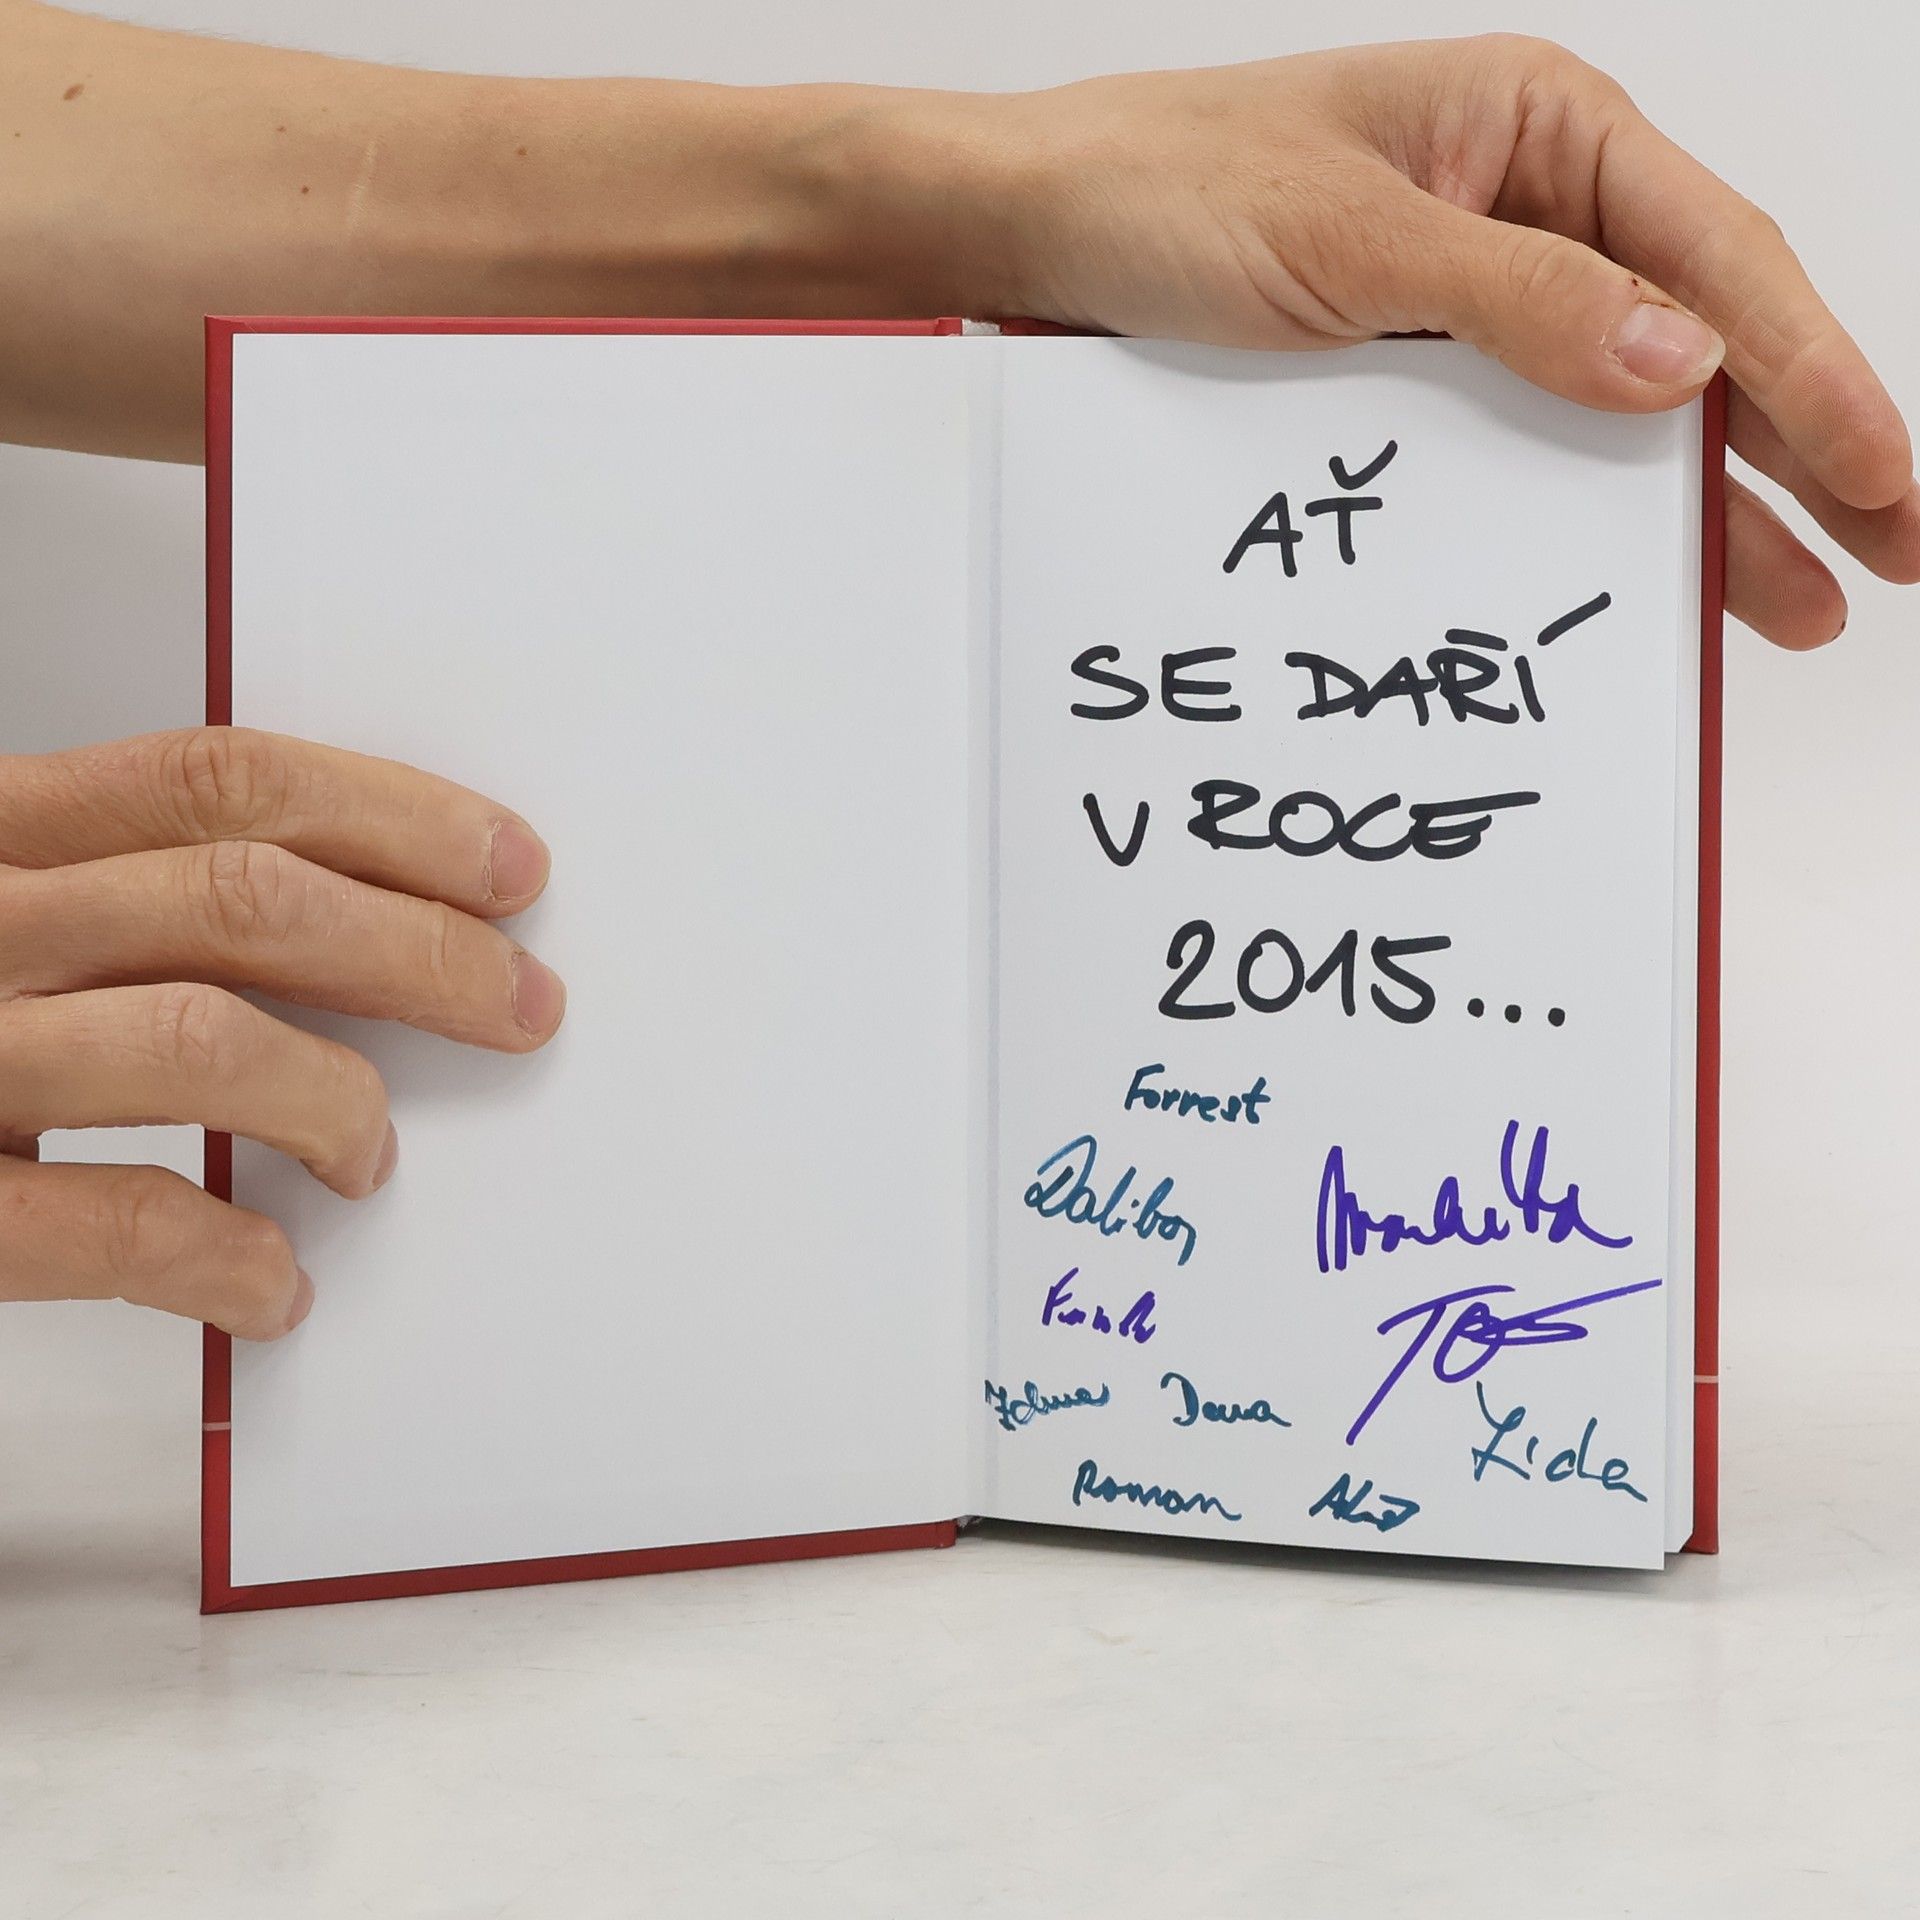 AŤ
SE DAŘÍ
V ROCE
2015...
Forrest
Dalibor
Markétka
Dana
Lída
Roman